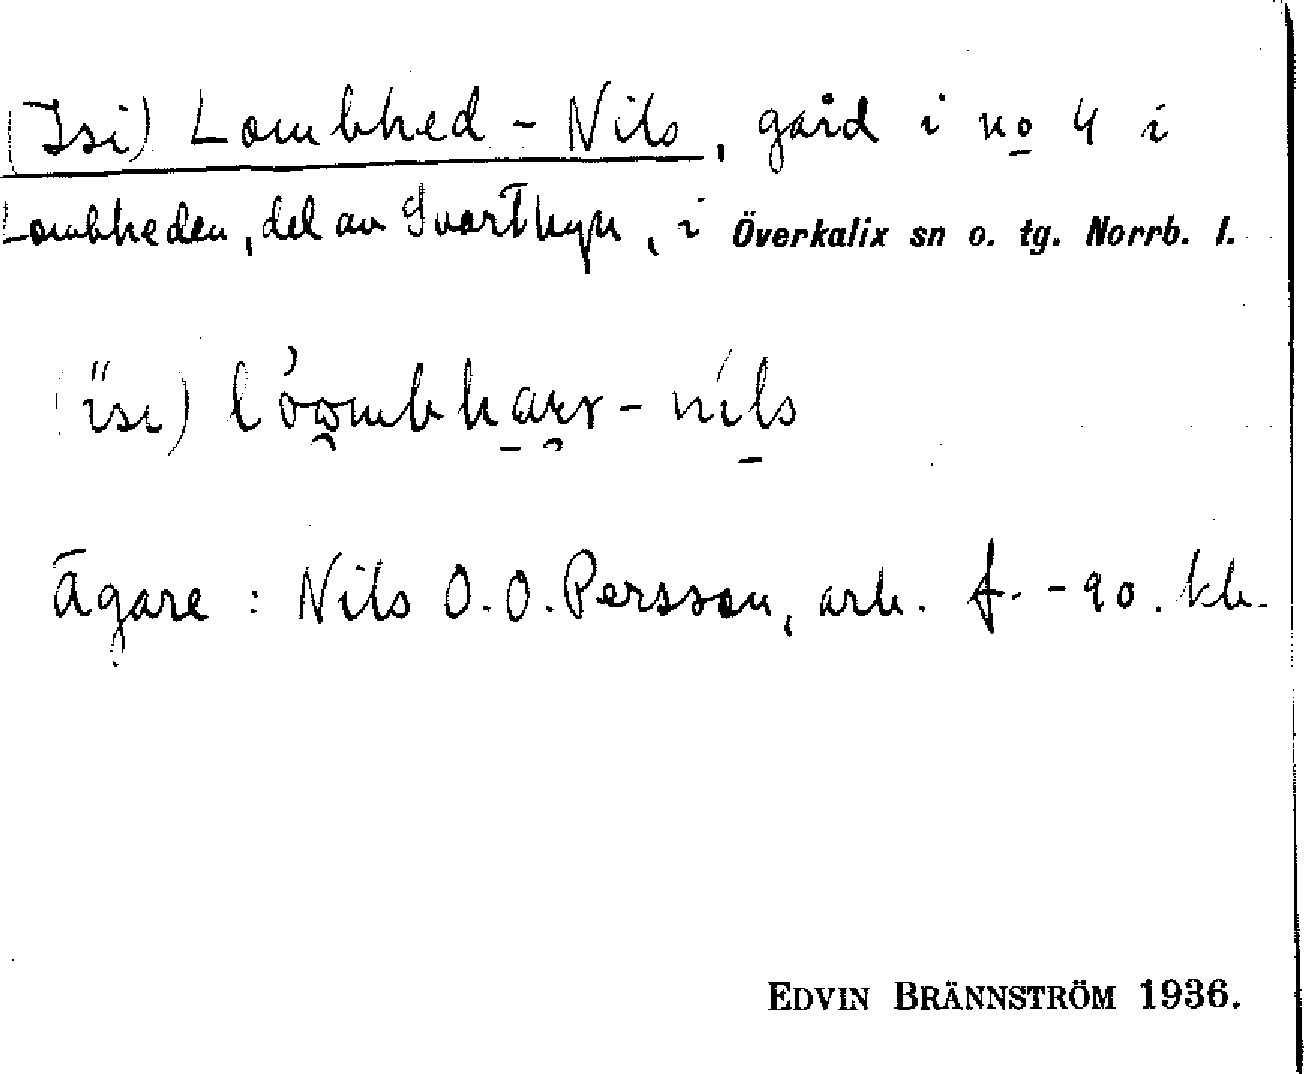 (Isi) Lombhed-Nils, gård i no 4 i
Lombheden, del av Svartbyn, i Överkalix sn o. tg. Norrb. l.
nils
Ägare: Nils O.O. Persson, arb. f. -90.
EDVIN BRÄNNSTRÖM 1936.